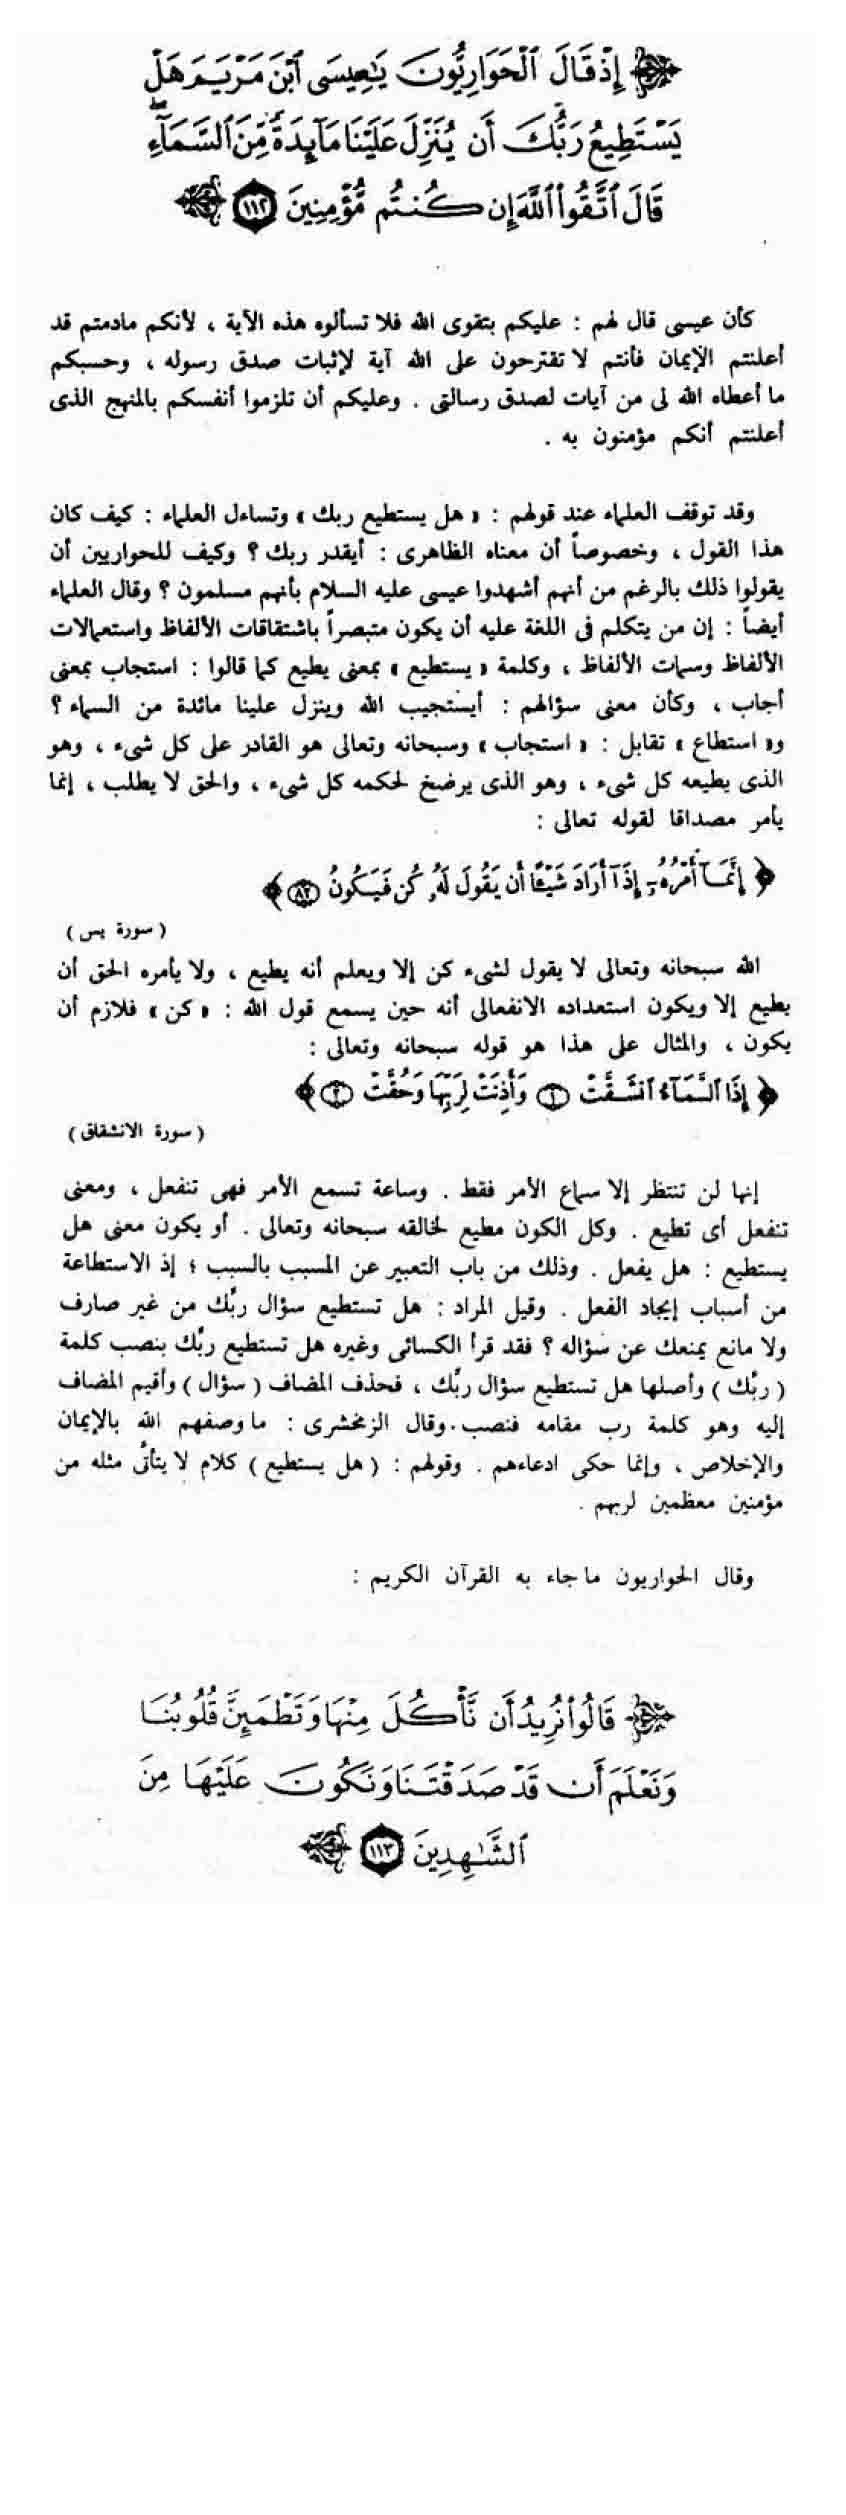 ﴿ إِذْ قَالَ ٱلْحَوَارِيُّونَ يَٰعِيسَى ٱبْنَ مَرْيَمَ هَلْ
يَسْتَطِيعُ رَبُّكَ أَن يُنَزِّلَ عَلَيْنَا مَآئِدَةً مِّنَ ٱلسَّمَآءِ
قَالَ ٱتَّقُوا۟ ٱللَّهَ إِن كُنتُم مُّؤْمِنِينَ ١١٢ ﴾
كأن عيسى قال لهم : عليكم بتقوى الله فلا تسألوه هذه الآية ، لأنكم مادمتم قد
أعلنتم الإيمان فأنتم لا تقترحون على الله آية لإثبات صدق رسوله ، وحسبكم
ما أعطاه الله لى من آيات لصدق رسالتى . وعليكم أن تلزموا أنفسكم بالمنهج الذى
أعلنتم أنكم مؤمنون به .
وقد توقف العلماء عند قولهم : « هل يستطيع ربك » وتساءل العلماء : كيف كان
هذا القول ، وخصوصاً أن معناه الظاهرى : أيقدر ربك ؟ وكيف للحواريين أن
يقولوا ذلك بالرغم من أنهم أشهدوا عيسى عليه السلام بأنهم مسلمون ؟ وقال العلماء
أيضاً : إن من يتكلم فى اللغة عليه أن يكون متبصراً باشتقاقات الألفاظ واستعمالات
الألفاظ وسمات الألفاظ ، وكلمة « يستطيع » بمعنى يطيع كما قالوا : استجاب بمعنى
أجاب ، وكأن معنى سؤالهم : أيستجيب الله وينزل علينا مائدة من السماء ؟
و« استطاع » تقابل : « استجاب » وسبحانه وتعالى هو القادر على كل شىء ، وهو
الذى يطيعه كل شىء ، وهو الذى يرضخ لحكمه كل شىء ، والحق لا يطلب ، إنما
يأمر مصداقا لقوله تعالى :
﴿ إِنَّمَآ أَمْرُهُۥٓ إِذَآ أَرَادَ شَيْـًٔا أَن يَقُولَ لَهُۥ كُن فَيَكُونُ ٨٢ ﴾
( سورة يس )
الله سبحانه وتعالى لا يقول لشىء كن إلا ويعلم أنه يطيع ، ولا يأمره الحق أن
يطيع إلا ويكون استعداده الانفعالى أنه حين يسمع قول الله : « كن » فلازم أن
يكون ، والمثال على هذا هو قوله سبحانه وتعالى :
﴿ إِذَا ٱلسَّمَآءُ ٱنشَقَّتْ ١ وَأَذِنَتْ لِرَبِّهَا وَحُقَّتْ ٢ ﴾
( سورة الانشقاق )
إنها لن تنتظر إلا سماع الأمر فقط . وساعة تسمع الأمر فهى تنفعل ، ومعنى
تنفعل أى تطيع . وكل الكون مطيع لخالقه سبحانه وتعالى . أو يكون معنى هل
يستطيع : هل يفعل . وذلك من باب التعبير عن المسبب بالسبب ؛ إذ الاستطاعة
من أسباب إيجاد الفعل . وقيل المراد : هل تستطيع سؤال ربِّك من غير صارف
ولا مانع يمنعك عن سؤاله ؟ فقد قرأ الكسائى وغيره هل تستطيع ربَّك بنصب كلمة
( ربَّك ) وأصلها هل تستطيع سؤال ربِّك ، فحذف المضاف ( سؤال ) وأقيم المضاف
إليه وهو كلمة رب مقامه فنصب . وقال الزمخشرى : ما وصفهم الله بالإيمان
والإخلاص ، وإنما حكى ادعاءهم . وقولهم : ( هل يستطيع ) كلام لا يتأتَّى مثله من
مؤمنين معظمين لربهم .
وقال الحواريون ما جاء به القرآن الكريم :
﴿ قَالُوا۟ نُرِيدُ أَن نَّأْكُلَ مِنْهَا وَتَطْمَئِنَّ قُلُوبُنَا
وَنَعْلَمَ أَن قَدْ صَدَقْتَنَا وَنَكُونَ عَلَيْهَا مِنَ
ٱلشَّٰهِدِينَ ١١٣ ﴾